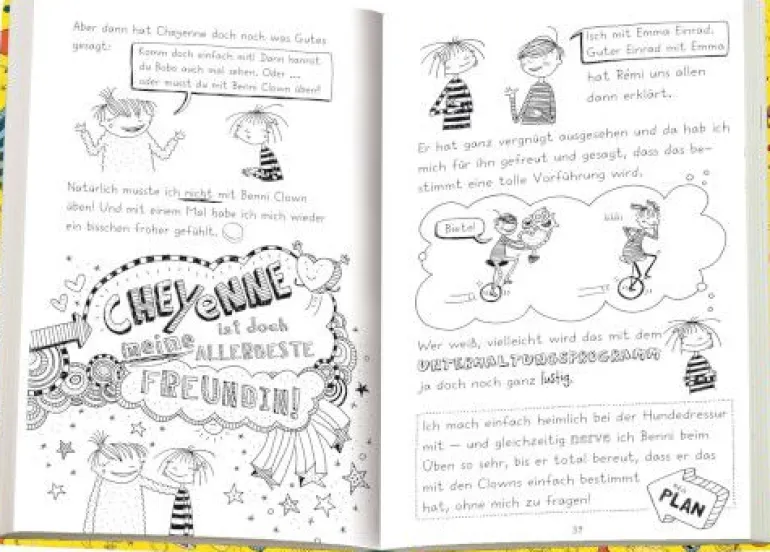 Aber dann hat Cheyenne doch noch was Gutes
gesagt:
Komm doch einfach mit! Dann kannst
du Bobo auch mal sehen. Oder ...
oder musst du mit Benni Clown üben?
Natürlich musste ich nicht mit Benni Clown
üben! Und mit einem Mal habe ich mich wieder
ein bisschen froher gefühlt.
CHEYENNE
ist doch
meine ALLERBESTE
FREUNDIN!
Isch mit Emma Einrad.
Guter Einrad mit Emma
hat Rémi uns allen
dann erklärt.
Er hat ganz vergnügt ausgesehen und da hab ich
mich für ihn gefreut und gesagt, dass das be-
stimmt eine tolle Vorführung wird.
Biete!
Wer weiß, vielleicht wird das mit dem
UNTERHALTUNGSPROGRAMM
ja doch noch ganz lustig.
Ich mach einfach heimlich bei der Hundedressur
mit – und gleichzeitig nerve ich Benni beim
Üben so sehr, bis er total bereut, dass er das
mit den Clowns einfach bestimmt
hat, ohne mich zu fragen!
PLAN
37